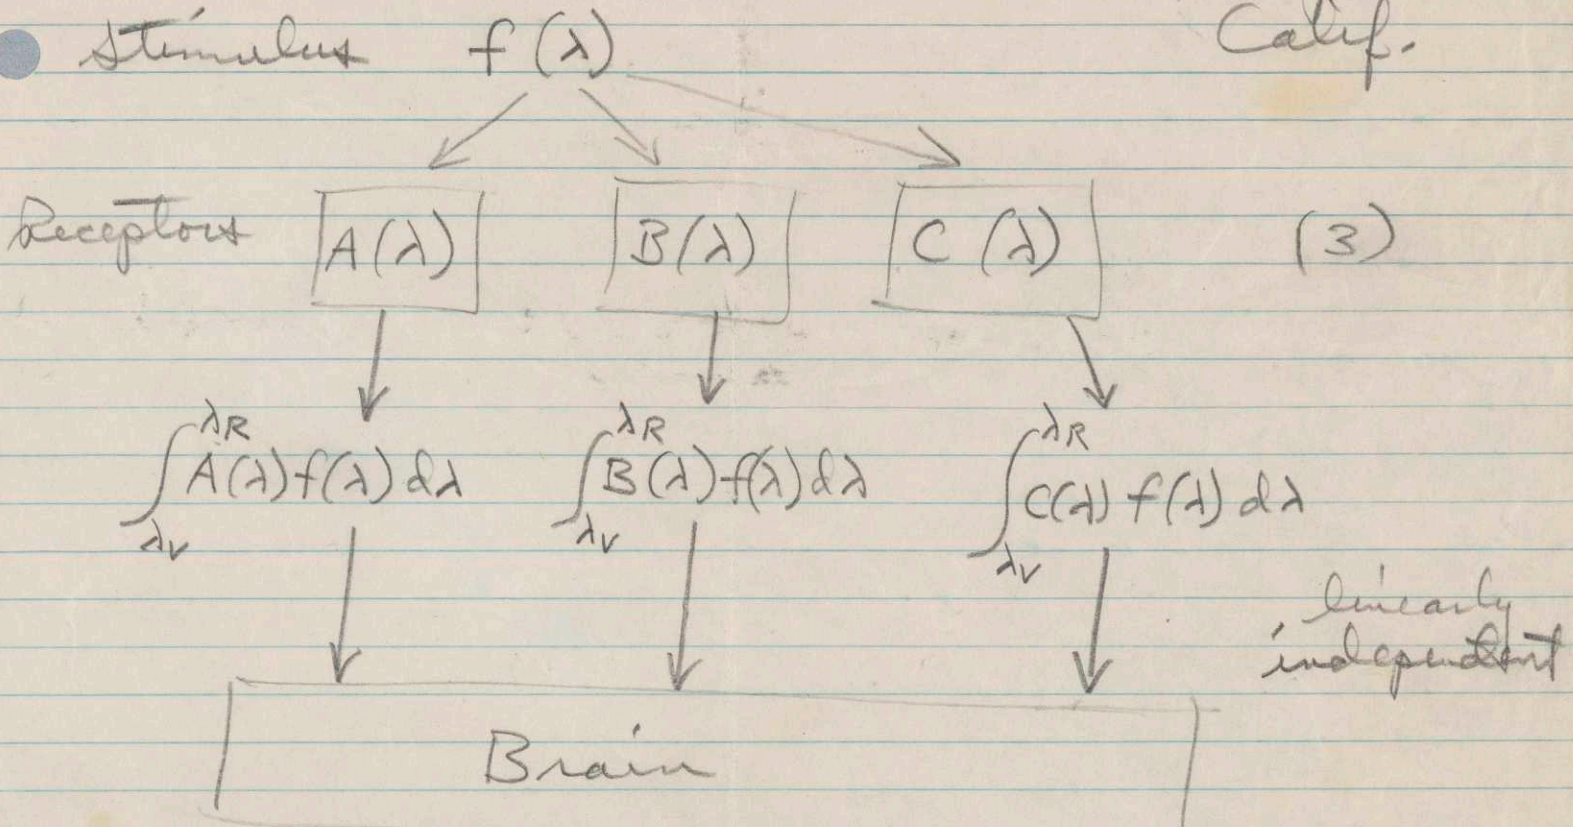 Stimulus f(λ) Calif.
Receptors A(λ) B(λ) C(λ) (3)
∫_{λV}^{λR} A(λ)f(λ)dλ ∫_{λV}^{λR} B(λ)f(λ)dλ ∫_{λV}^{λR} C(λ)f(λ)dλ
linearly
independent
Brain